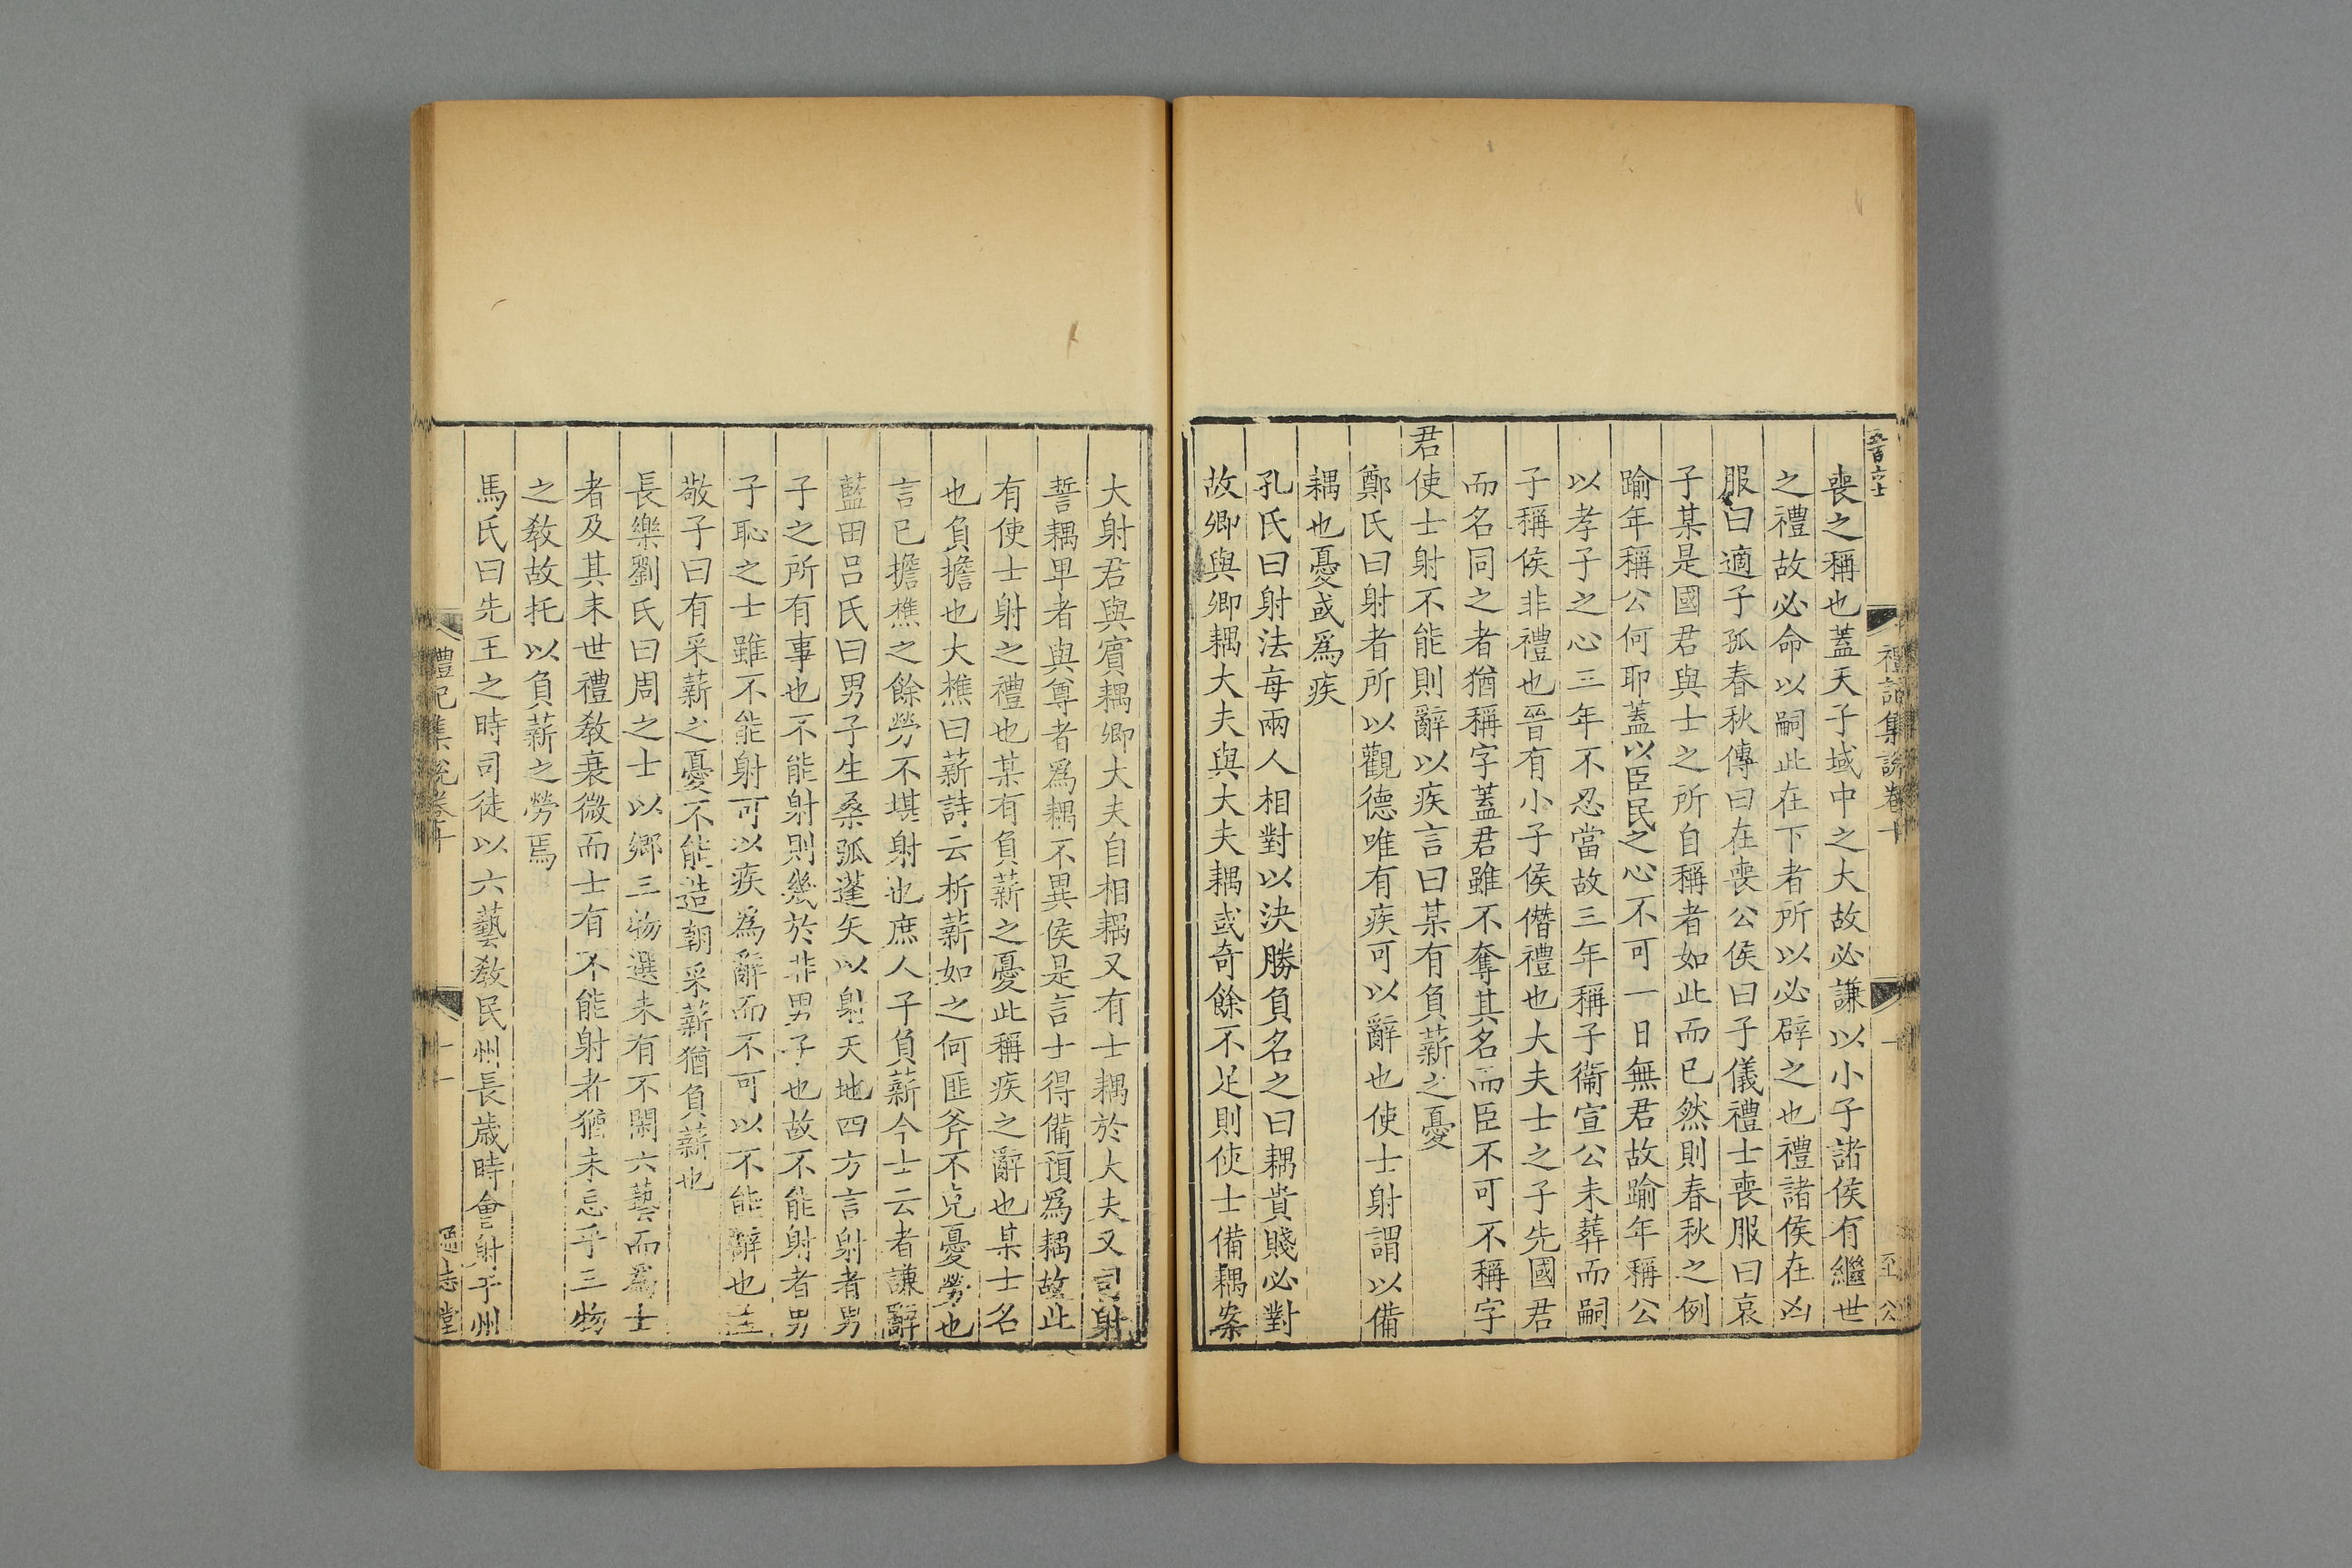 喪之稱也蓋天子域中之大故必謙以小子諸侯有繼世
之禮故必命以嗣此在下者所以必辟之也禮諸侯在凶
服曰適子孤春秋傳曰在喪公侯曰子儀禮士喪服曰哀
子某是國君與士之所自稱者如此而已然則春秋之例
踰年稱公何耶蓋以臣民之心不可一日無君故踰年稱公
以孝子之心三年不忍當故三年稱子衞宣公未葬而嗣
子稱侯非禮也晉有小子侯僭禮也大夫士之子先國君
而名同之者猶稱字蓋君雖不奪其名而臣不可不稱字
君使士射不能則辭以疾言曰某有負薪之憂
鄭氏曰射者所以觀德唯有疾可以辭也使士射謂以備
耦也憂或爲疾
孔氏曰射法每兩人相對以決勝負名之曰耦貴賤必對
故卿與卿耦大夫與大夫耦或奇餘不足則使士備耦案
禮記集說卷十
大射君與賓耦卿大夫自相耦又有士耦於大夫又司射
誓耦卑者與尊者爲耦不異侯是言士得備預爲耦故此
有使士射之禮也某有負薪之憂此稱疾之辭也某士名
也負擔也大樵曰薪詩云析薪如之何匪斧不克憂勞也
言已擔樵之餘勞不堪射也庶人子負薪今士云者謙辭
藍田呂氏曰男子生桑弧蓬矢以射天地四方言射者男
子之所有事也不能射則幾於非男子也故不能射者男
子恥之士雖不能射可以疾爲辭而不可以不能辭也孟
敬子曰有采薪之憂不能造朝采薪猶負薪也
長樂劉氏曰周之士以鄉三物選未有不閑六藝而爲士
者及其末世禮敎衰微而士有不能射者猶未忘乎三物
之敎故托以負薪之勞焉
馬氏曰先王之時司徒以六藝敎民州長歲時會射于州
禮記集說卷十
十一
通志堂